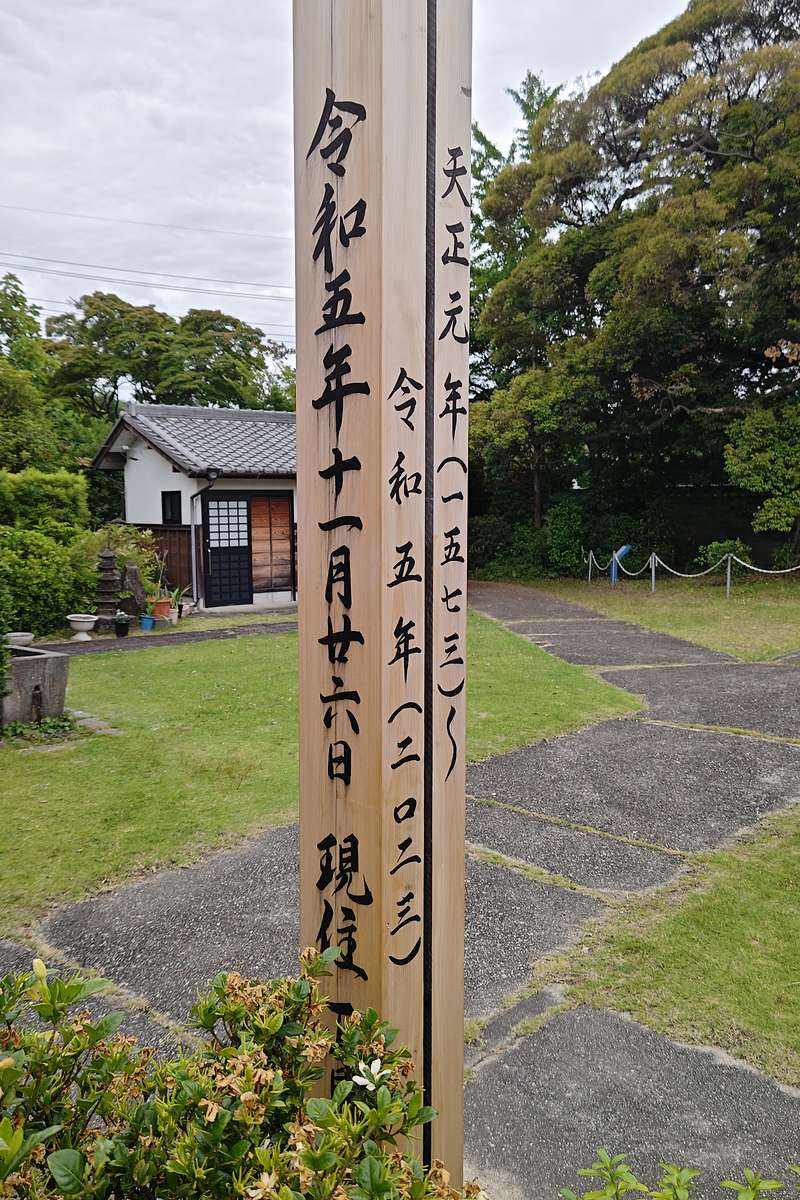 天正元年(一五七三)〜
令和五年(二〇二三)
令和五年十一月廿六日 現住